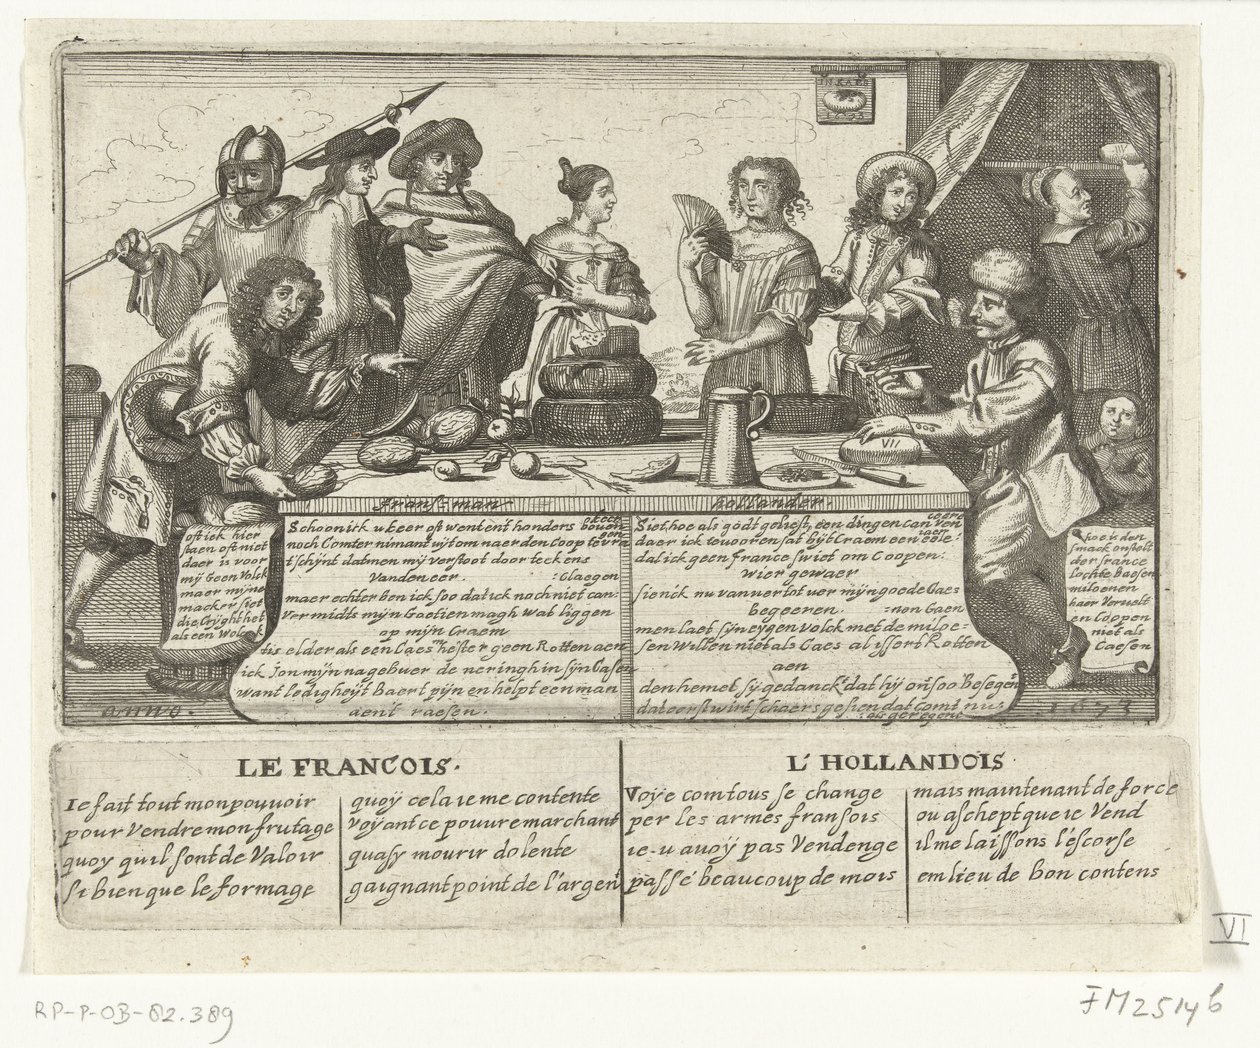 IN KAES
1033
VII
franssman
hollander.
oft iek hier
staen oft niet
daer is voor
mij Geen Volck
maer mijne
macker siet
die Crijght het
als een Wolck
Schoonick u keer oft went ent honders boven keer
noch Comter nimant uyt om naer den Coop te vragen
t schijnt datmen mij verstoot door teckens
Van den eer. :Claegen
maer echter ben ick soo dat ick noch niet can:
Vermidts mijn Gaetien magh wat liggen
op mijn Craem
tis elder als een Caes hester geen Rotten aen
ick Jon mijn nagebuer de neringh in sijn Casen
want ledigheijt Baert pijn en helpt een man
aent raesen.
Siet hoe als godt gelieft, een dingen can
daer ick te vooren sat bijt Craem een
dat ick geen france swiet om Coopen:
wier gewaer
sien ick nu van vert ot uer mijn goede Caes
begeeren. :-nen Gaen
men laet sijn eygen volck met de miloe=
sen Willen niet als Caes al issert Rotten
aen
den hemet sij gedanckt dat hij ons soo Besegent
dat eerst wirt schaers gesien dat comt nu
als geregent
hoe is den
smack ontstelt
der france
lochte Baesen
mitoenen
haer Vervelt
en Coopen
niet als
Caesen
anno.
1673
LE FRANCOIS.
Ie fait tout mon pouvoir
pour Vendre mon frutage
quoy quil sont de Valoir
si bien que le formage
quoÿ cela ie me contente
Voÿant ce pouure marchant
quasy mourir dolente
gaignant point de l'argent
L' HOLLANDOIS
Voÿe com tous se change
per les armes fransois
ie-u auoÿ pas Vendenge
passé beaucoup de mois
mais maintenant de force
ou aschept que ie Vend
il me laissons l'éscorse
em lieu de bon contens
VI
RP-P-OB-82.389
FM2514b